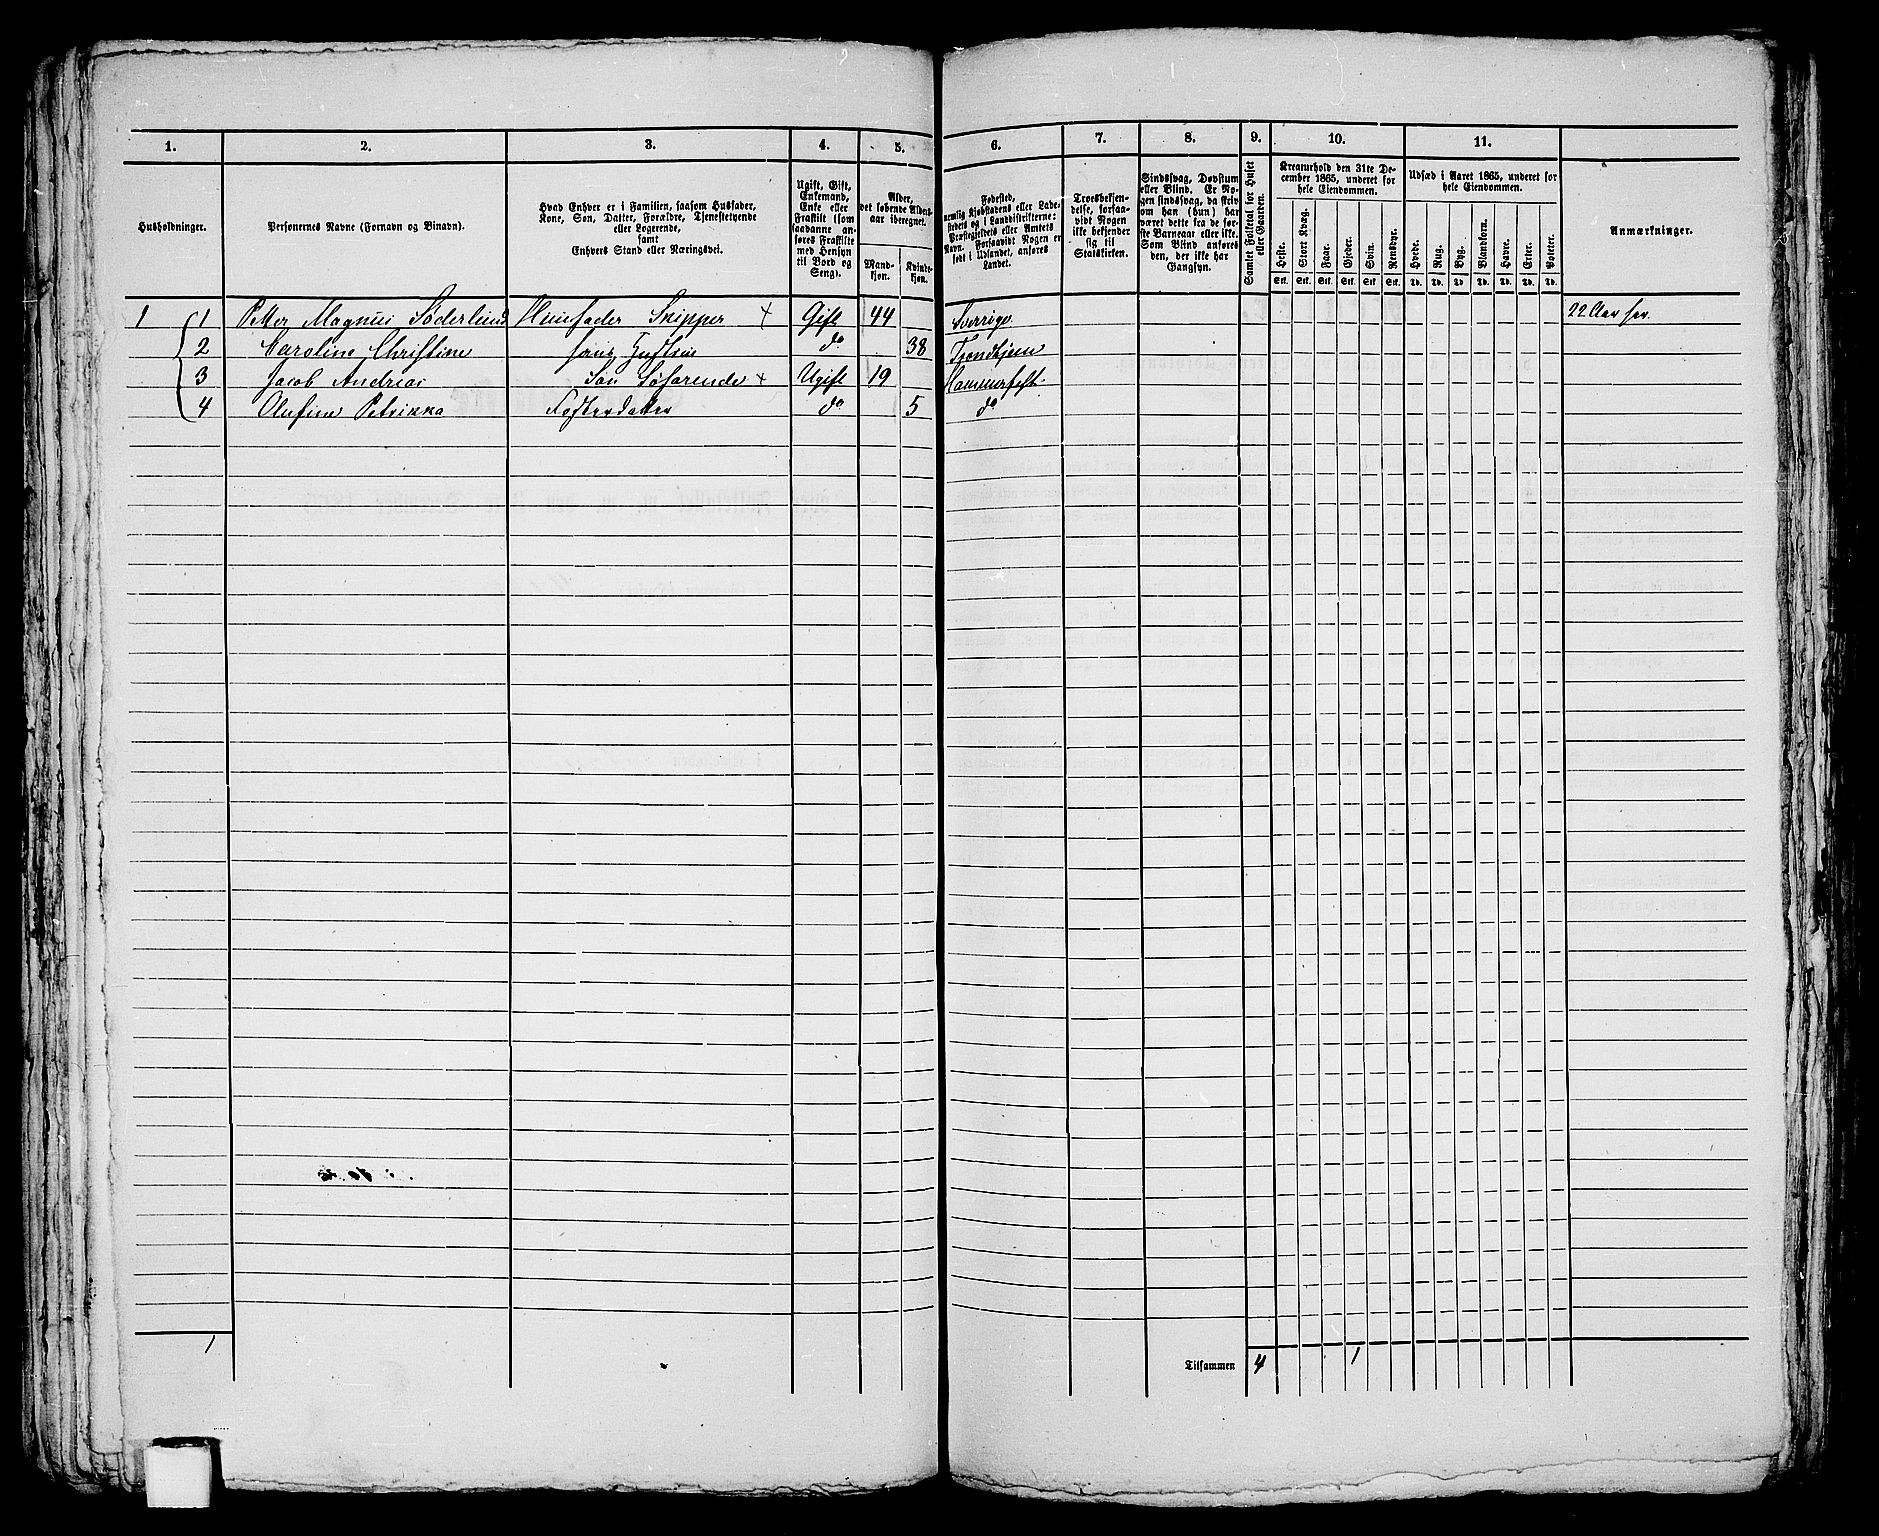 1. 2. 3. 4. 5. 6. 7. 8. 9. 10. 11.
Husholdninger.
Personernes Navne (Fornavn og Binavn).
Hvad Enhver er i Familien, saasom Husfader,
Kone, Søn, Datter, Forældre, Tjenestetyende
eller Logerende,
samt
Enhvers Stand eller Næringsvei.
Ugift, Gift,
Enkemand,
Enke eller
Fraskilt (som
saadanne an-
føres Fraskilte
med Hensyn
til Bord og
Seng).
Alder,
det løbende Alders-
aar iberegnet.
Mand-
kjøn.
Kvinde-
kjøn.
Fødested,
nemlig Kjøbstadens eller Lade-
stedets og i Landdistrikterne:
Præstegjeldets eller Amtets
Navn. Forsaavidt Nogen er
født i Udlandet, anføres
Landet.
Troesbekjen-
delse, forsaa-
vidt Nogen
ikke bekjender
sig til
Statskirken.
Sindssvag, Døvstum
eller Blind. Er No-
gen sindssvag, da skriv
om han (hun) har
været dette fra de før-
ste Barneaar eller ikke.
Som Blind anføres
den, der ikke har
Gangsyn.
Samlet Folketal for Huset
eller Gaarden.
Kreaturhold den 31te De-
cember 1865, underet for
hele Eiendommen.
Heste. Stort Kvæg. Faar. Gjeder. Svin. Rensdyr.
Stk. Stk. Stk. Stk. Stk. Stk.
Udsæd i Aaret 1865, underet for
hele Eiendommen.
Hvede. Rug. Byg. Blandkorn. Havre. Erter. Poteter.
Td. Td. Td. Td. Td. Td. Td.
Anmærkninger.
1 1 Petter Magnus Søderlund Huusfader Skipper + Gift 44 Sverrige 22 Aar her.
2 Caroline Christine hans Hustrue do 38 Trondhjem
3 Jacob Andreas Søn Søfarende + Ugift 19 Hammerfest
4 Olufine Petrikka Fosterdatter do 5 do
1
Tilsammen 4 1